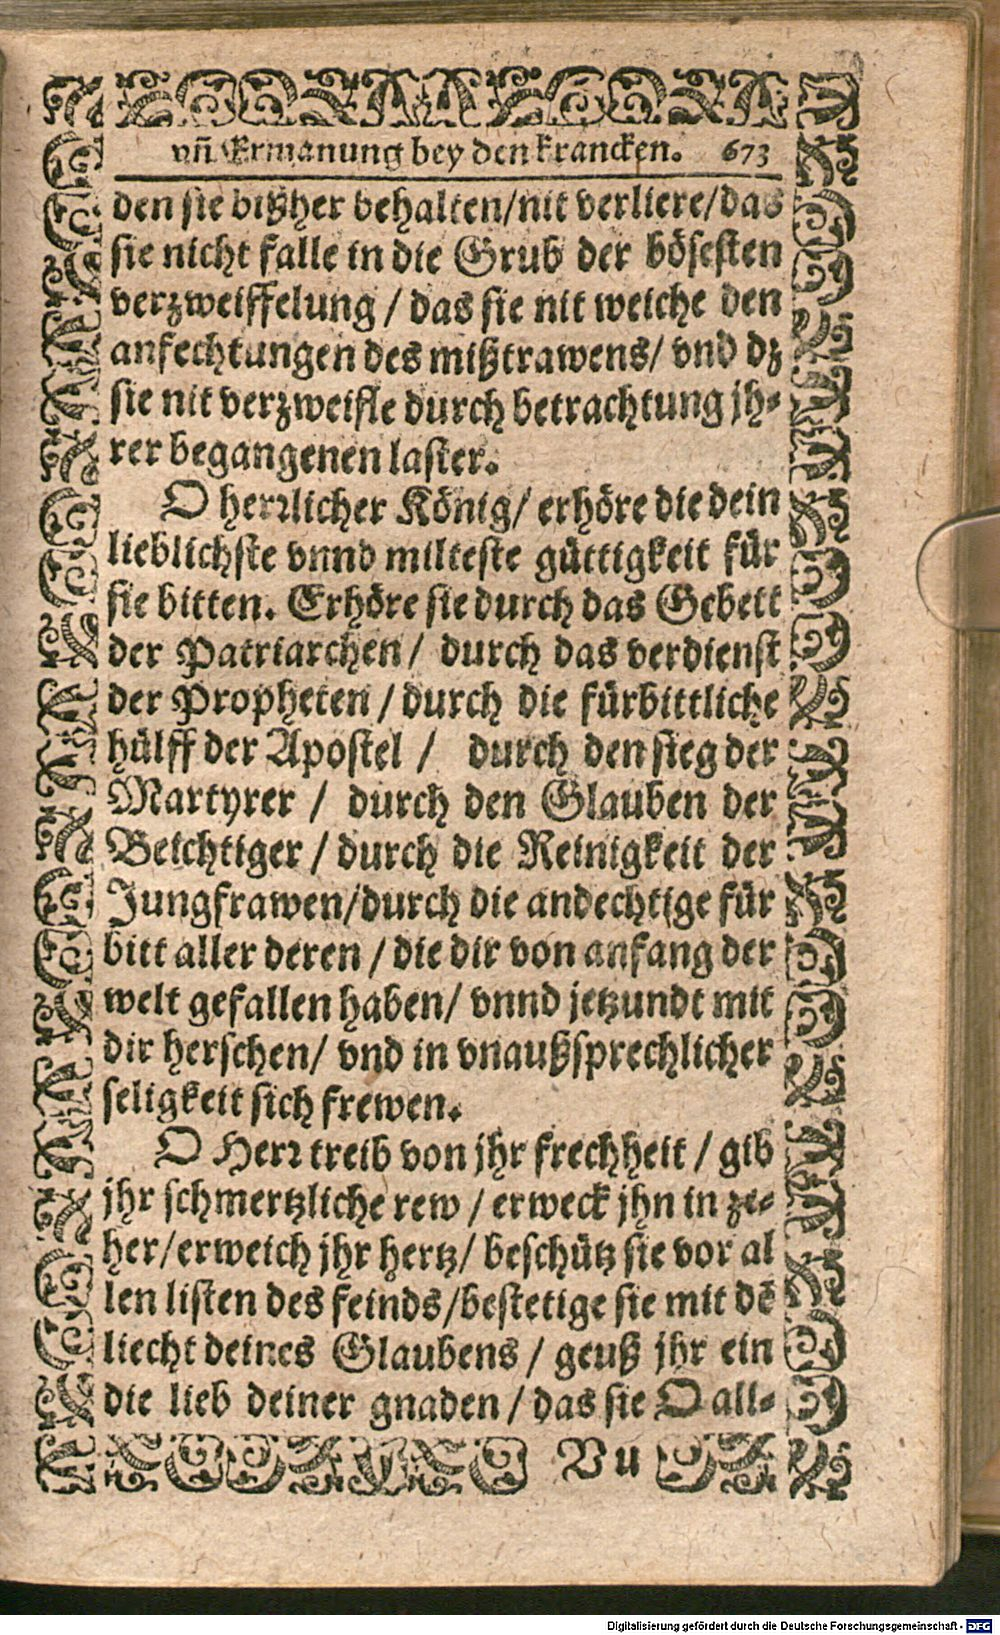 vñ Ermanung bey den krancken. 673
den sie bißher behalten/nit verliere/das
sie nicht falle in die Grub der bösesten
verzweiffelung / das sie nit weiche den
anfechtungen des mißtrawens/ vnd dz
sie nit verzweifle durch betrachtung jh-
rer begangenen laster.
O herrlicher König/ erhöre die dein
lieblichste vnnd milteste güttigkeit für
sie bitten. Erhöre sie durch das Gebett
der Patriarchen/ durch das verdienst
der Propheten / durch die fürbittliche
hülff der Apostel / durch den sieg der
Martyrer / durch den Glauben der
Beichtiger / durch die Reinigkeit der
Jungfrawen/durch die andechtige für
bitt aller deren / die dir von anfang der
welt gefallen haben/ vnnd jetzundt mit
dir herschen/ vnd in vnaußsprechlicher
seligkeit sich frewen.
O Herr treib von jhr frechheit / gib
jhr schmertzliche rew / erweck jhn in ze-
her/erweich jhr hertz/ beschütz sie vor al
len listen des feinds/bestetige sie mit dē
liecht deines Glaubens / geuß jhr ein
die lieb deiner gnaden / das sie O all-
Vu
Digitalisierung gefördert durch die Deutsche Forschungsgemeinschaft - DFG